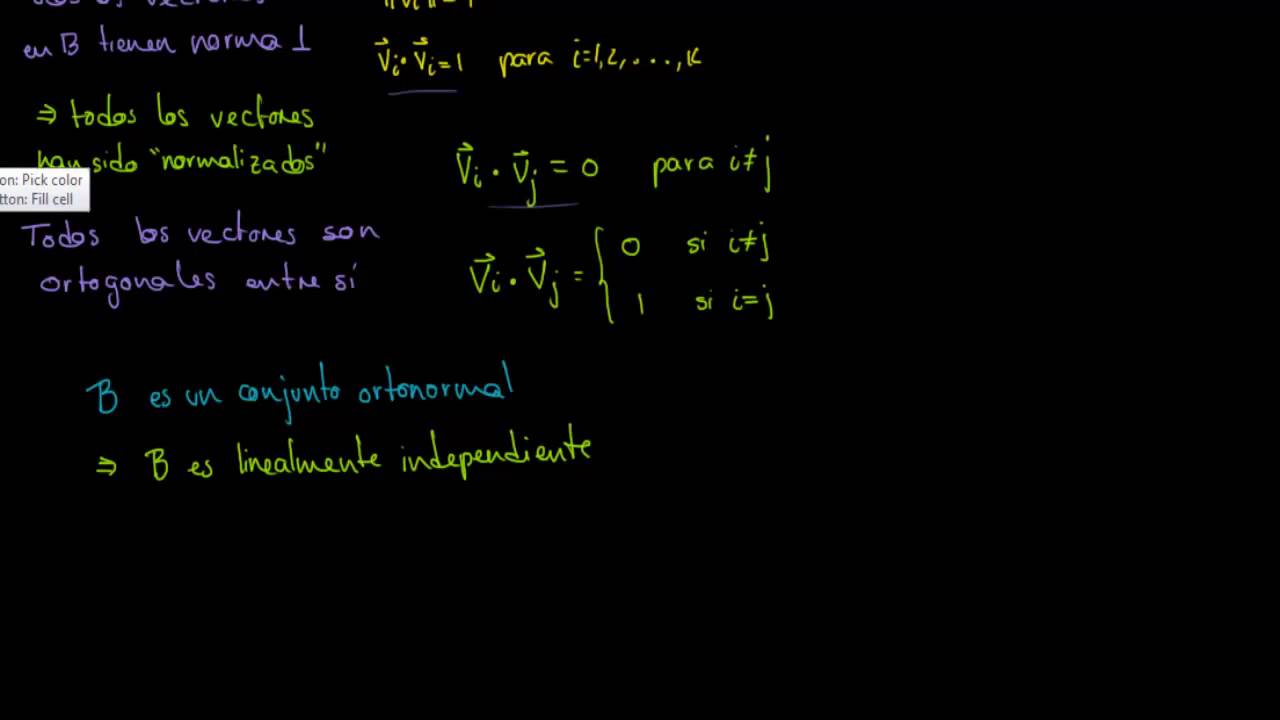 en B tienen norma 1
V⃗i · V⃗i = 1 para i=1,2,...,k
⇒ todos los vectores
han sido "normalizados"
on: Pick color
tton: Fill cell
V⃗i · V⃗j = 0 para i≠j
Todos los vectores son
ortogonales entre sí
V⃗i · V⃗j = { 0 si i≠j
1 si i=j
B es un conjunto ortonormal
⇒ B es linealmente independiente